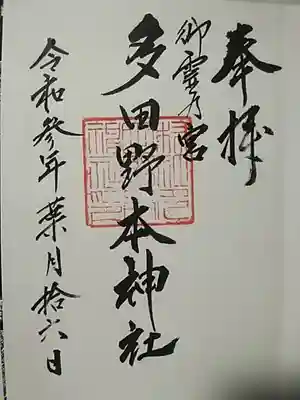 奉拝
御霊乃宮
多田野本神社
令和参年葉月拾六日